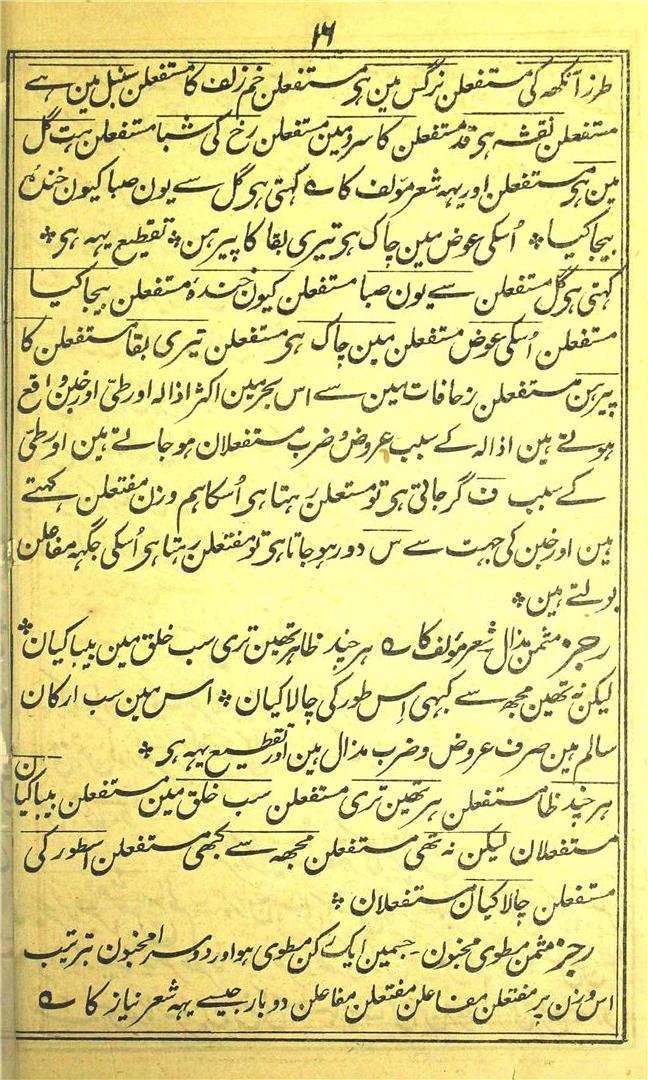 ۱۶
طرز آنکھہ کی مستفعلن نرگس مین ہی مستفعلن خم زلف کا مستفعلن سنبل مین ہے
مستفعلن نقشہ ہی قد مستفعلن کا سرو مین مستفعلن رخ کی شبا مستفعلن ہت گل
مین ہی مستفعلن اور یہہ شعر مؤلف کا ے کہتی ہی گل سے یون صبا کیون خندۂ
بیجا کیا * اُسکی عوض مین چاک ہی تیری بقا کا پیرہن * تقطیع یہہ ہی *
کہتی ہی گل مستفعلن سے یون صبا مستفعلن کیون خندۂ مستفعلن بیجا کیا
مستفعلن اُسکی عوض مستفعلن مین چاک ہی مستفعلن تیری بقا مستفعلن کا
پیرہن مستفعلن زحافات مین سے اس بحر مین اکثر اذالہ اور طی اور خبن واقع
ہوتے ہین اذالہ کے سبب عروض و ضرب مستفعلان ہو جاتے ہین اور طی
کے سبب ف گر جاتی ہی تو مستعلن رہتا ہی اُسکا ہم وزن مفتعلن کہتے
ہین اور خبن کی جہت سے س دور ہو جاتا ہی تو مفتعلن رہتا ہی اُسکی جگہہ مفاعلن
بولتے ہین *
رجز مثمن مذال شعر مؤلف کا ے ہر چند ظاہر تھین تری سب خلق مین بیباکیان *
لیکن نہ تھین مجھہ سے کبہی اِس طور کی چالاکیان * اس مین سب ارکان
سالم ہین صرف عروض و ضرب مذال ہین اور تقطیع یہہ ہی *
ہر چند ظا مستفعلن ہر تھین تری مستفعلن سب خلق مین مستفعلن بیباکیان
مستفعلان لیکن نہ تھی مستفعلن مجھہ سے کبھی مستفعلن اسطور کی
مستفعلن چالاکیان مستفعلان *
رجز مثمن مطوی مخبون ۔ جسمین ایک رکن مطوی ہو اور دوسرا مخبون بترتیب
اس وزن پر مفتعلن مفاعلن مفتعلن مفاعلن دو بار جیسے یہہ شعر نیاز کا ے